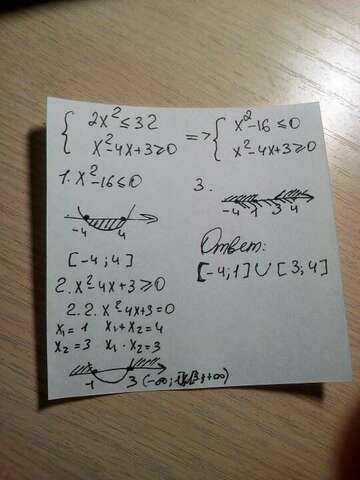 { 2x² ≤ 32
x² - 4x + 3 ≥ 0
=> { x² - 16 ≤ 0
x² - 4x + 3 ≥ 0
1. x² - 16 ≤ 0
-4 4
[-4; 4]
2. x² - 4x + 3 ≥ 0
2.2. x² - 4x + 3 = 0
x₁ = 1 x₁ + x₂ = 4
x₂ = 3 x₁ · x₂ = 3
1 3 (-∞; 1]∪[3; +∞)
3.
-4 1 3 4
Ответ:
[-4; 1] ∪ [3; 4]